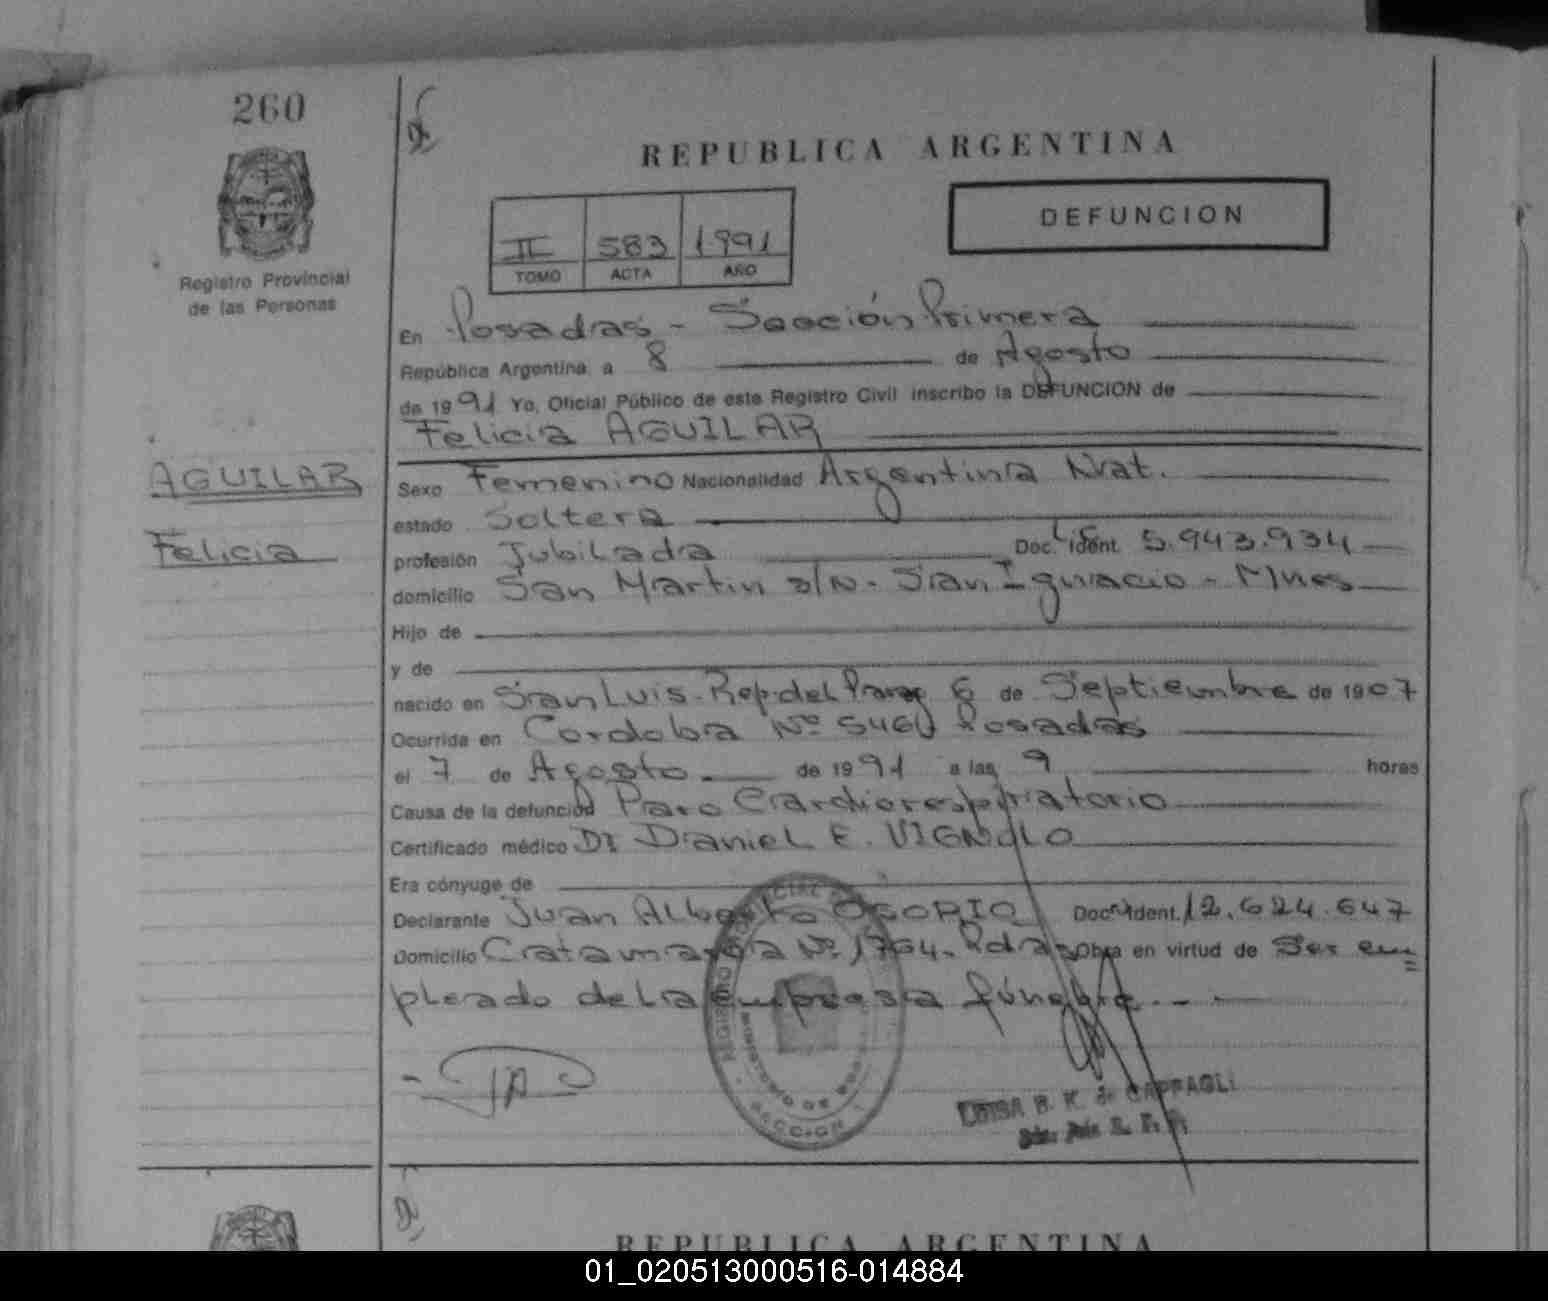 260
REPUBLICA ARGENTINA
DEFUNCION
II 583 1991
TOMO ACTA AÑO
Registro Provincial
de las Personas
En Posadas - Sección Primera
República Argentina a 8 de Agosto
de 1991 Yo, Oficial Público de este Registro Civil inscribo la DEFUNCION de
Felicia AGUILAR
AGUILAR
Felicia
Sexo Femenino Nacionalidad Argentina Nat.
estado Soltera
profesión Jubilada Doc. L.C. ident. 5.943.934
domicilio San Martin s/N - San Ignacio - Mnes
Hijo de
y de
nacido en San Luis - Rep. del Parag 6 de Septiembre de 1907
Ocurrida en Cordoba Nº 5460 Posadas
el 7 de Agosto de 1991 a las 9 horas
Causa de la defunción Paro Cardiorespiratorio
Certificado médico Dr Daniel E. VIGNOLO
Era cónyuge de
Declarante Juan Alberto OSORIO Doc. ident. 12.624.647
Domicilio Catamarca Nº 1764 - Pdas Obra en virtud de Ser em
pleado de la empresa fúnebre.
REGISTRO
SECCION
LUISA B. K. de
REPUBLICA ARGENTINA
01_020513000516-014884